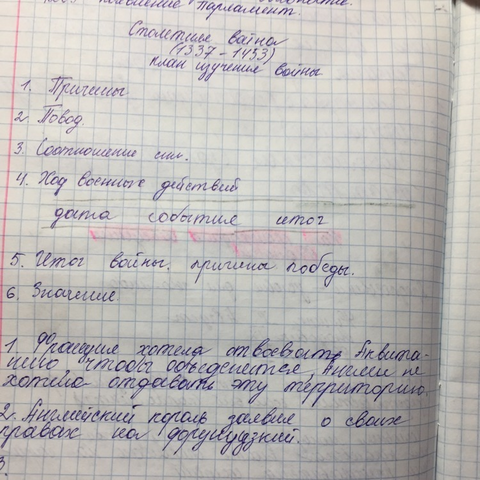 появление Парламент.
Столетняя война
(1337-1453)
план изучения войны
1. Причины
2 Повод
3. Соотношение сил.
4. Ход военных действий
дата события итог
5. Итог войны, причина победы.
6. Значение
1. Франция хотела отвоевать Аквита-
нию чтобы объеденится, Англия не
хотела отдавать эту территорию.
2. Английский король заявил о своих
правах на
3.